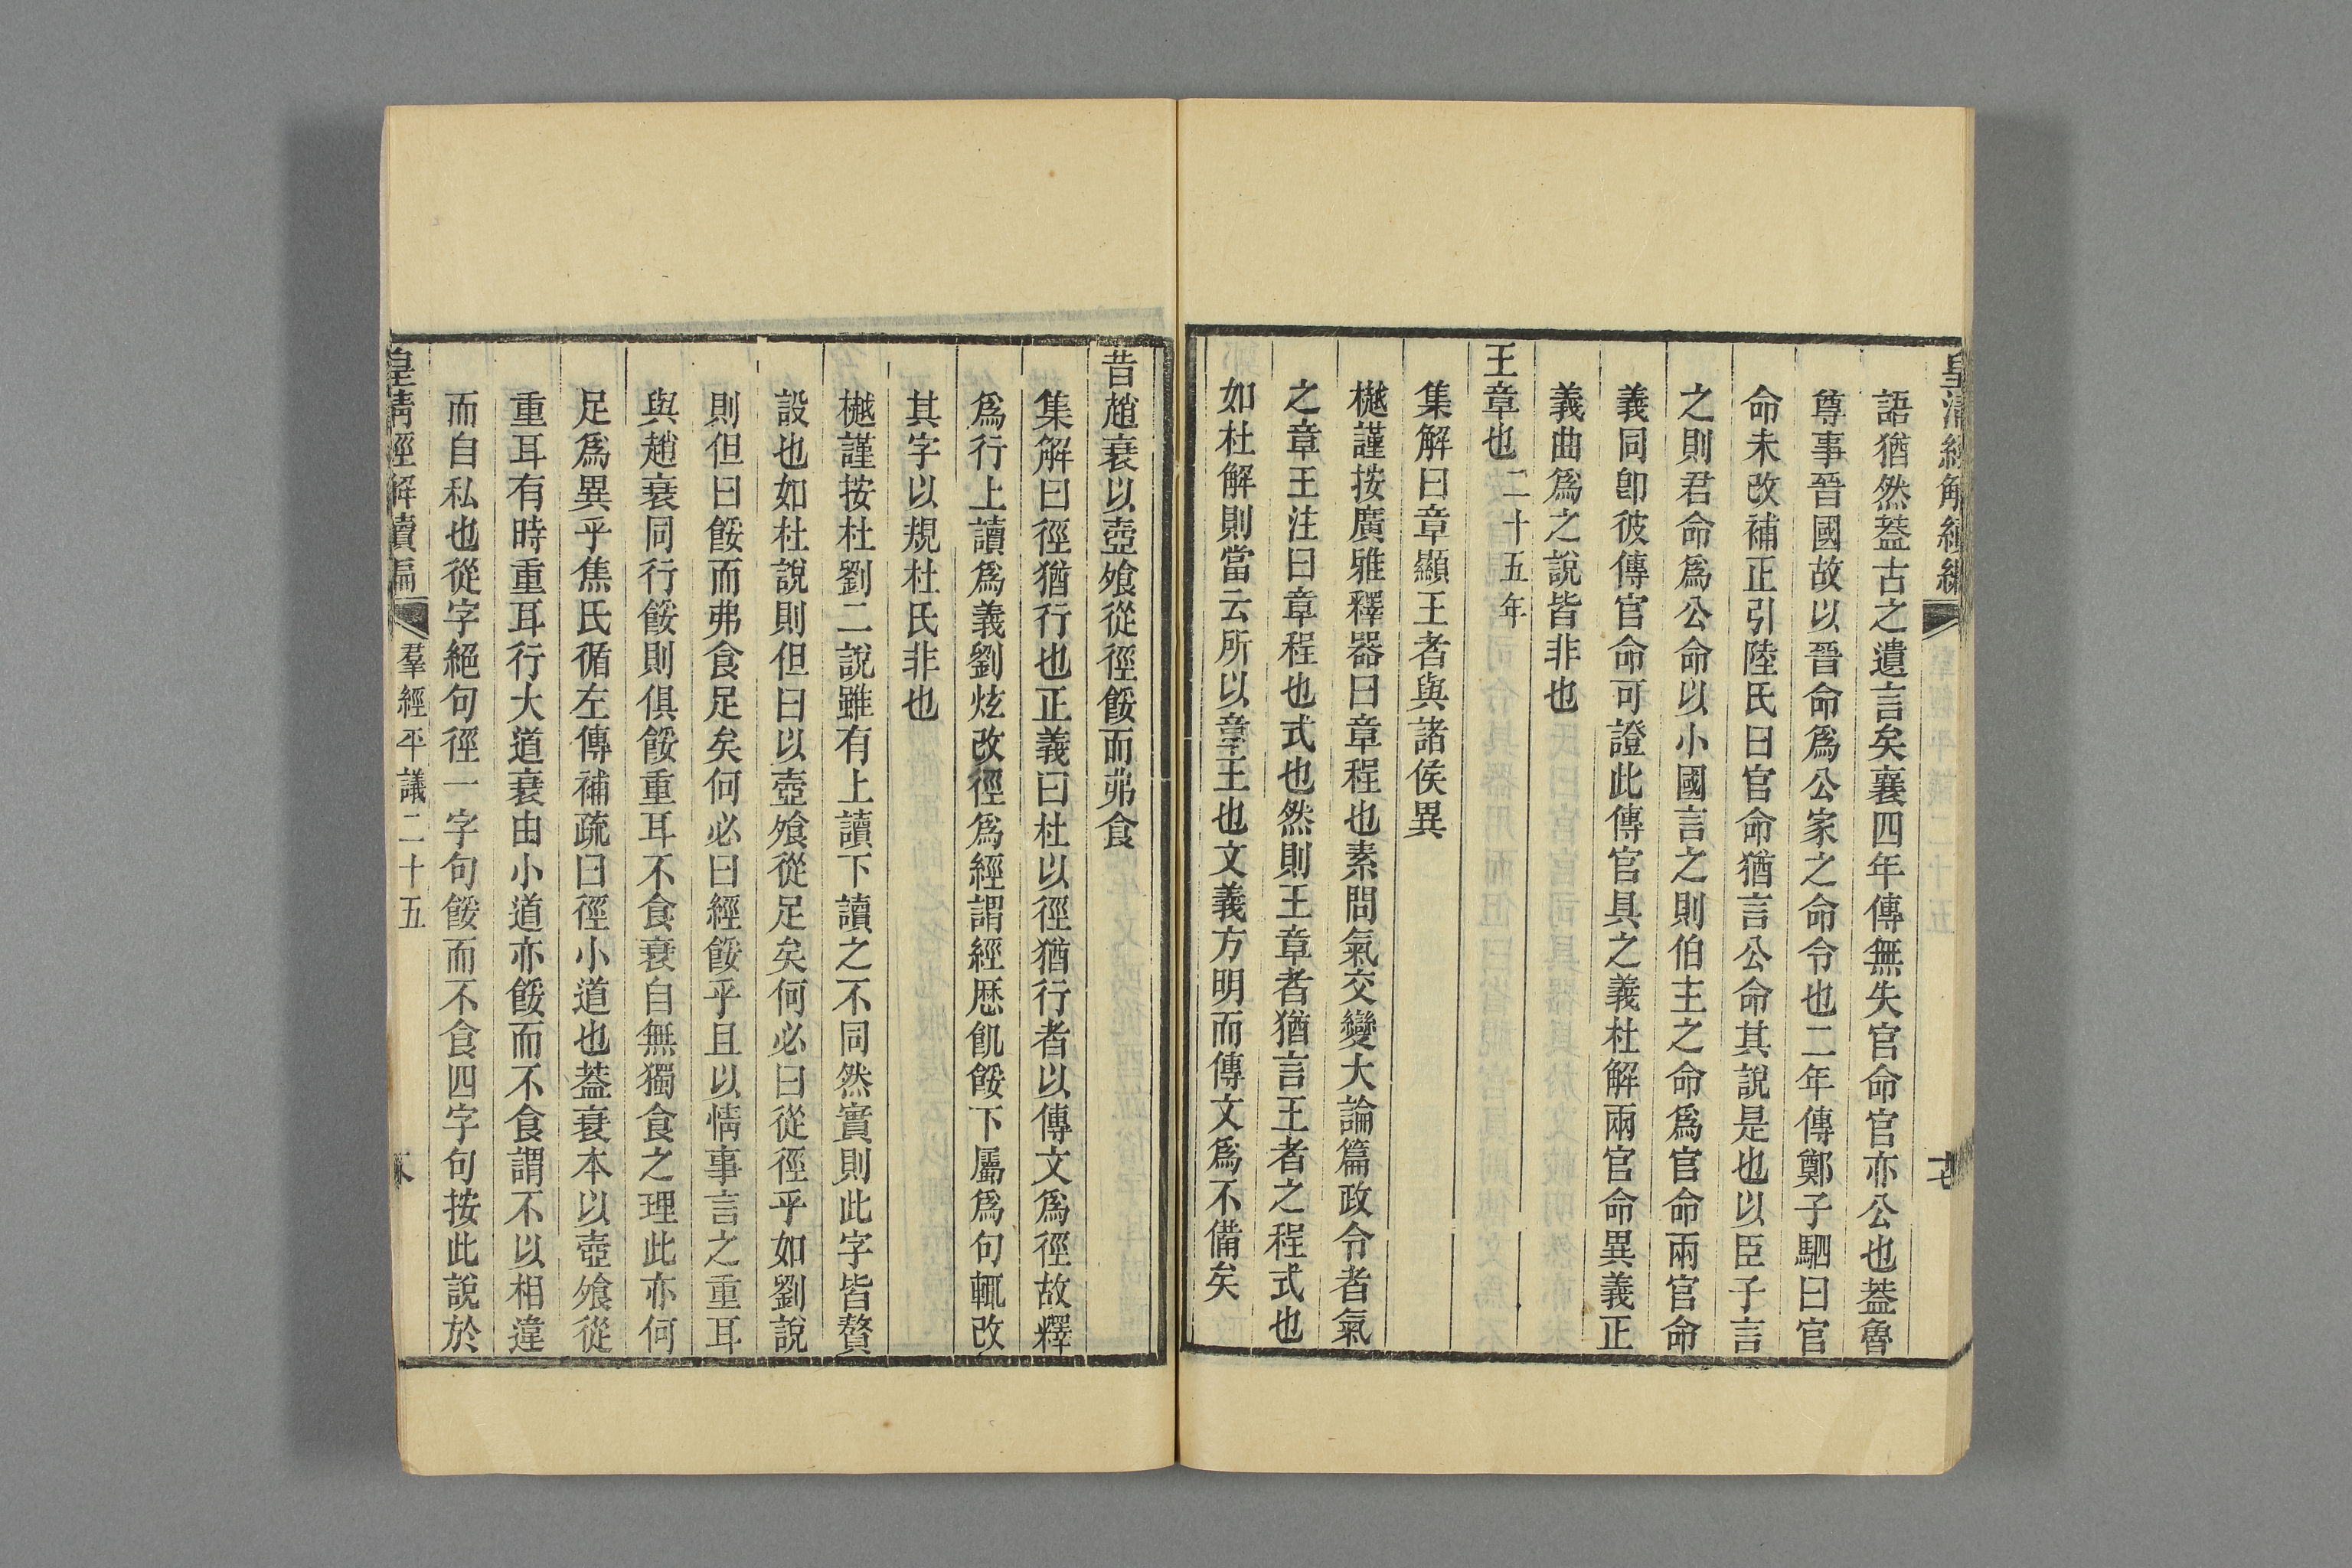 皇清經解續編
七
語猶然葢古之遺言矣襄四年傳無失官命官亦公也葢魯
尊事晉國故以晉命爲公家之命令也二年傳鄭子駟曰官
命未改補正引陸氏曰官命猶言公命其說是也以臣子言
之則君命爲公命以小國言之則伯主之命爲官命兩官命
義同卽彼傳官命可證此傳官具之義杜解兩官命異義正
義曲爲之說皆非也
王章也二十五年
集解曰章顯王者與諸侯異
樾謹按廣雅釋器曰章程也素問氣交變大論篇政令者氣
之章王注曰章程也式也然則王章者猶言王者之程式也
如杜解則當云所以章王也文義方明而傳文爲不備矣
昔趙衰以壺飧從徑餒而弗食
集解曰徑猶行也正義曰杜以徑猶行者以傳文爲徑故釋
爲行上讀爲義劉炫改徑爲經謂經歷飢餒下屬爲句輒改
其字以規杜氏非也
樾謹按杜劉二說雖有上讀下讀之不同然實則此字皆贅
設也如杜說則但曰以壺飧從足矣何必曰從徑乎如劉說
則但曰餒而弗食足矣何必曰經餒乎且以情事言之重耳
與趙衰同行餒則俱餒重耳不食衰自無獨食之理此亦何
足爲異乎焦氏循左傳補疏曰徑小道也葢衰本以壺飧從
重耳有時重耳行大道衰由小道亦餒而不食謂不以相違
而自私也從字絕句徑一字句餒而不食四字句按此說於
皇清經解續編
羣經平議二十五